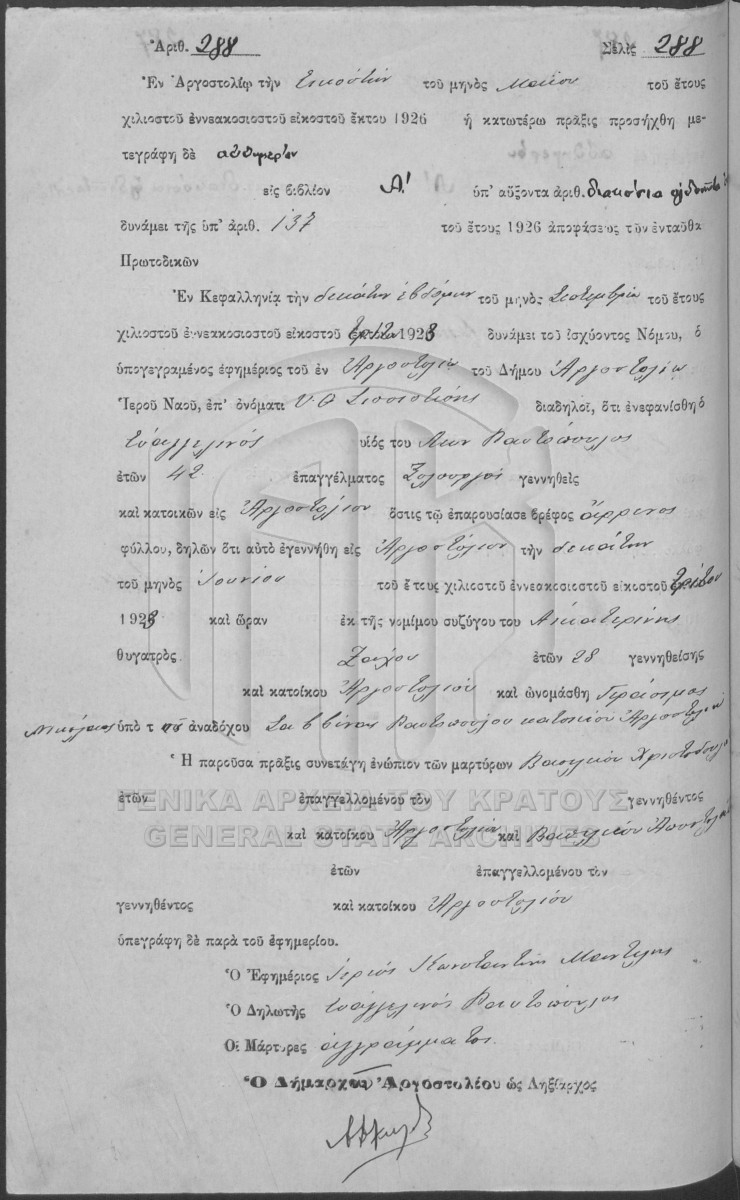 Ἀριθ. 288 Σελὶς 288
Ἐν Ἀργοστολίῳ τὴν Εἰκοστὴν τοῦ μηνὸς Μαΐου τοῦ ἔτους
χιλιοστοῦ ἐννεακοσιοστοῦ εἰκοστοῦ ἕκτου 1926 ἡ κατωτέρω πρᾶξις προσήχθη με-
τεγράφη δὲ αὐθημερὸν
εἰς βιβλίον Α' ὑπ' αὔξοντα ἀριθ. διακόσια
δυνάμει τῆς ὑπ' ἀριθ. 137 τοῦ ἔτους 1926 ἀποφάσεως τῶν ἐνταῦθα
Πρωτοδικῶν
Ἐν Κεφαλληνίᾳ τὴν δεκάτην ἑβδόμην τοῦ μηνὸς Σεπτεμβρίου τοῦ ἔτους
χιλιοστοῦ ἐννεακοσιοστοῦ εἰκοστοῦ τρίτου 1923 δυνάμει τοῦ ἰσχύοντος Νόμου, ὁ
ὑπογεγραμένος ἐφημέριος τοῦ ἐν Ἀργοστολίῳ τοῦ Δήμου Ἀργοστολίου
Ἱεροῦ Ναοῦ, ἐπ' ὀνόματι Υ. Θ. Σισσιωτίσης διαδηλοῖ, ὅτι ἐνεφανίσθη ὁ
Εὐαγγελινὸς υἱός του Ραυτόπουλος
ἐτῶν 42 ἐπαγγέλματος Ξυλουργὸς γεννηθεὶς
καὶ κατοικῶν εἰς Ἀργοστόλιον ὅστις τῷ ἐπαρουσίασε βρέφος ἄρρενος
φύλλου, δηλῶν ὅτι αὐτὸ ἐγεννήθη εἰς Ἀργοστόλιον τὴν δεκάτην
τοῦ μηνὸς Ἰουνίου τοῦ ἔτους χιλιοστοῦ ἐννεακοσιοστοῦ εἰκοστοῦ τρίτου
1923 καὶ ὥραν ἐκ τῆς νομίμου συζύγου του Αἰκατερίνης
θυγατρὸς Ζάχου ἐτῶν 28 γεννηθείσης
καὶ κατοίκου Ἀργοστολίου καὶ ὠνομάσθη Γεράσιμος
Νικόλαος ὑπὸ τ οῦ ἀναδόχου Σαββίνας Ραυτοπούλου κατοίκου Ἀργοστολίου
Ἡ παροῦσα πρᾶξις συνετάγη ἐνώπιον τῶν μαρτύρων Βασιλικοῦ Χριστοδούλου
ἐτῶν ἐπαγγελλομένου τὸν γεννηθέντος
καὶ κατοίκου Ἀργοστολίου καὶ
ἐτῶν ἐπαγγελλομένου τὸν
γεννηθέντος καὶ κατοίκου Ἀργοστολίου
ὑπεγράφη δὲ παρὰ τοῦ ἐφημερίου.
Ὁ Ἐφημέριος Ἱερεὺς Κωνσταντῖνος
Ὁ Δηλωτὴς Εὐαγγελινὸς Ραυτόπουλος
Οἱ Μάρτυρες ἀγράμματοι
Ὁ Δήμαρχος Ἀργοστολίου ὡς Ληξίαρχος
ΓΕΝΙΚΑ ΑΡΧΕΙΑ ΤΟΥ ΚΡΑΤΟΥΣ
GENERAL STATE ARCHIVES